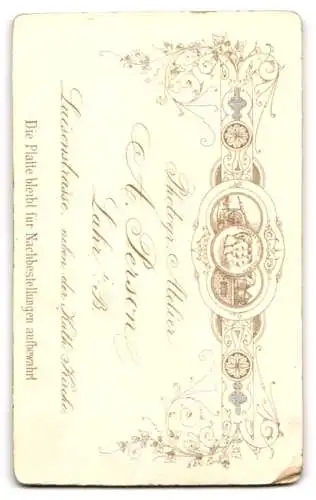 Photogr. Atelier
A. Person
Lahr i. B.
Luisenstrasse, neben der Kath. Kirche.
Die Platte bleibt für Nachbestellungen aufbewahrt